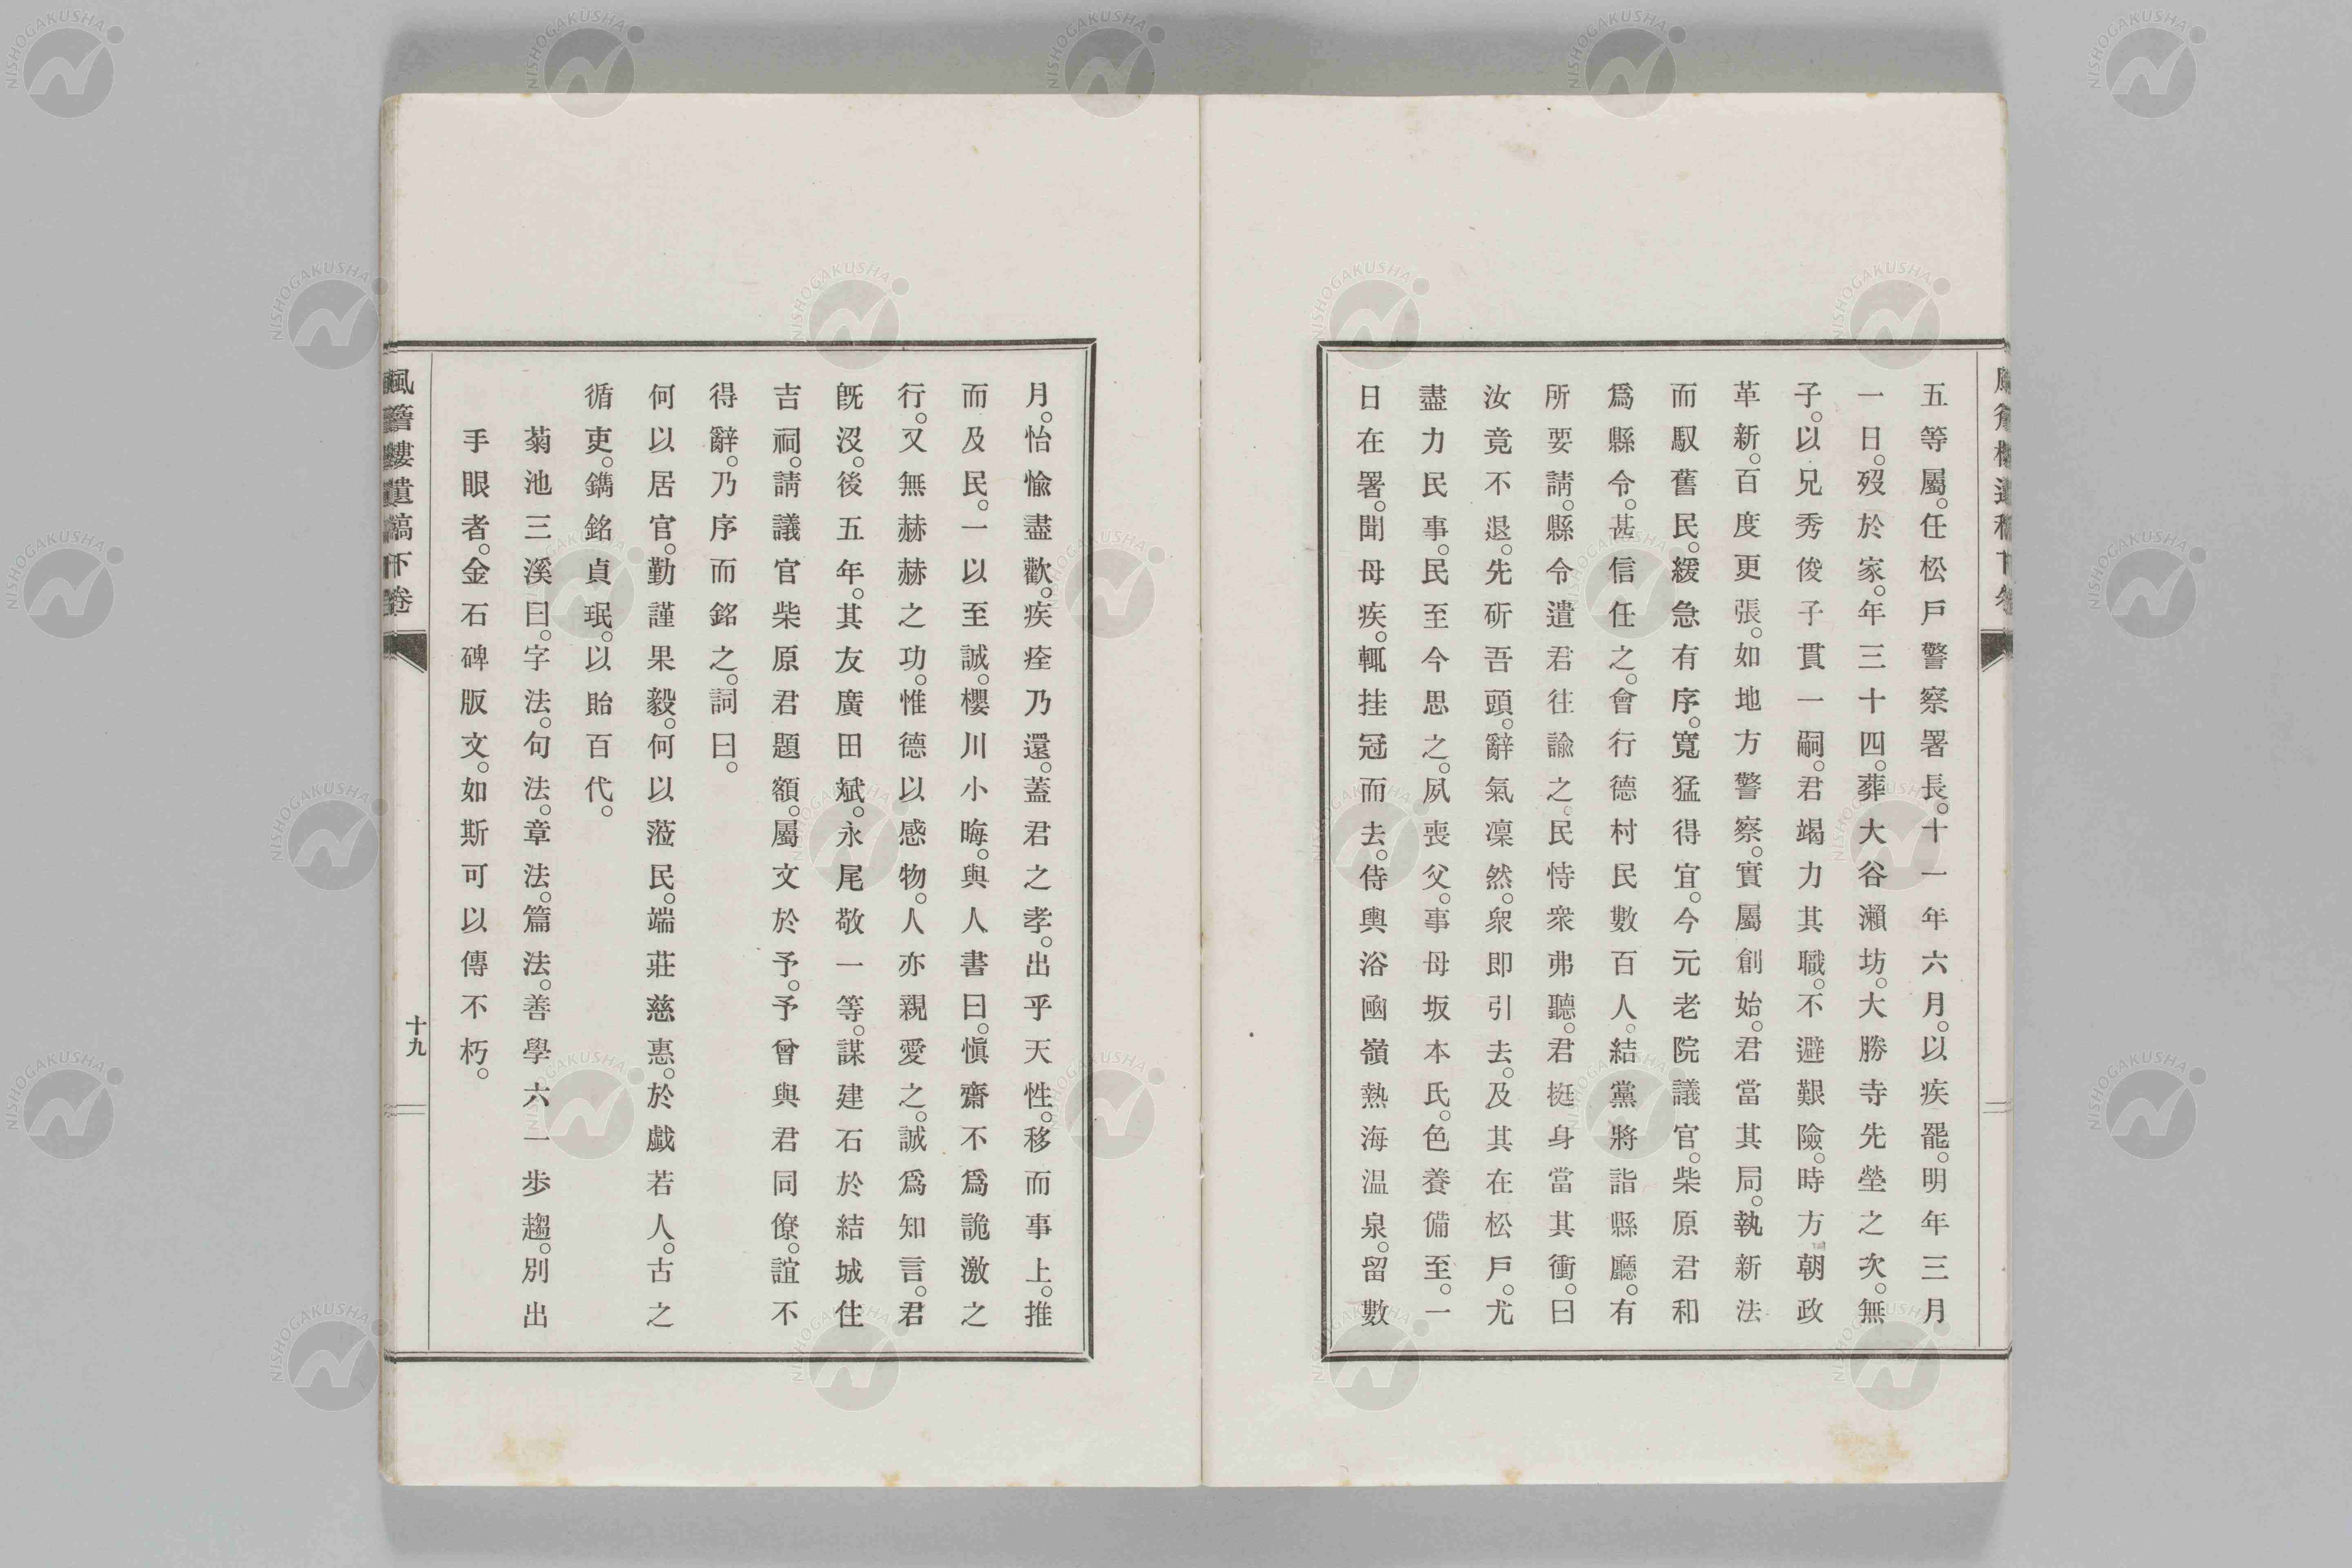 五等屬。任松戶警察署長。十一年六月。以疾罷。明年三月
一日。歿於家。年三十四。葬大谷瀨坊。大勝寺先塋之次。無
子。以兄秀俊子貫一嗣。君竭力其職。不避艱險。時方朝政
革新。百度更張。如地方警察。實屬創始。君當其局。執新法
而馭舊民。緩急有序。寬猛得宜。今元老院議官。柴原君和
爲縣令。甚信任之。會行德村民數百人。結黨將詣縣廳。有
所要請。縣令遣君往諭之。民恃衆弗聽。君挺身當其衝。曰
汝竟不退。先斫吾頭。辭氣凜然。衆即引去。及其在松戶。尤
盡力民事。民至今思之。夙喪父。事母坂本氏。色養備至。一
日在署。聞母疾。輒挂冠而去。侍輿浴凾嶺熱海温泉。留數
月。怡愉盡歡。疾痊乃還。蓋君之孝。出乎天性。移而事上。推
而及民。一以至誠。櫻川小晦。與人書曰。愼齋不爲詭激之
行。又無赫赫之功。惟德以感物。人亦親愛之。誠爲知言。君
既沒。後五年。其友廣田斌。永尾敬一等。謀建石於結城住
吉祠。請議官柴原君題額。屬文於予。予曾與君同僚。誼不
得辭。乃序而銘之。詞曰。
何以居官。勤謹果毅。何以蒞民。端莊慈惠。於戲若人。古之
循吏。鐫銘貞珉。以貽百代。
菊池三溪曰。字法。句法。章法。篇法。善學六一步趨。別出
手眼者。金石碑版文。如斯可以傳不朽。
風簷樓遺稿下卷
十九